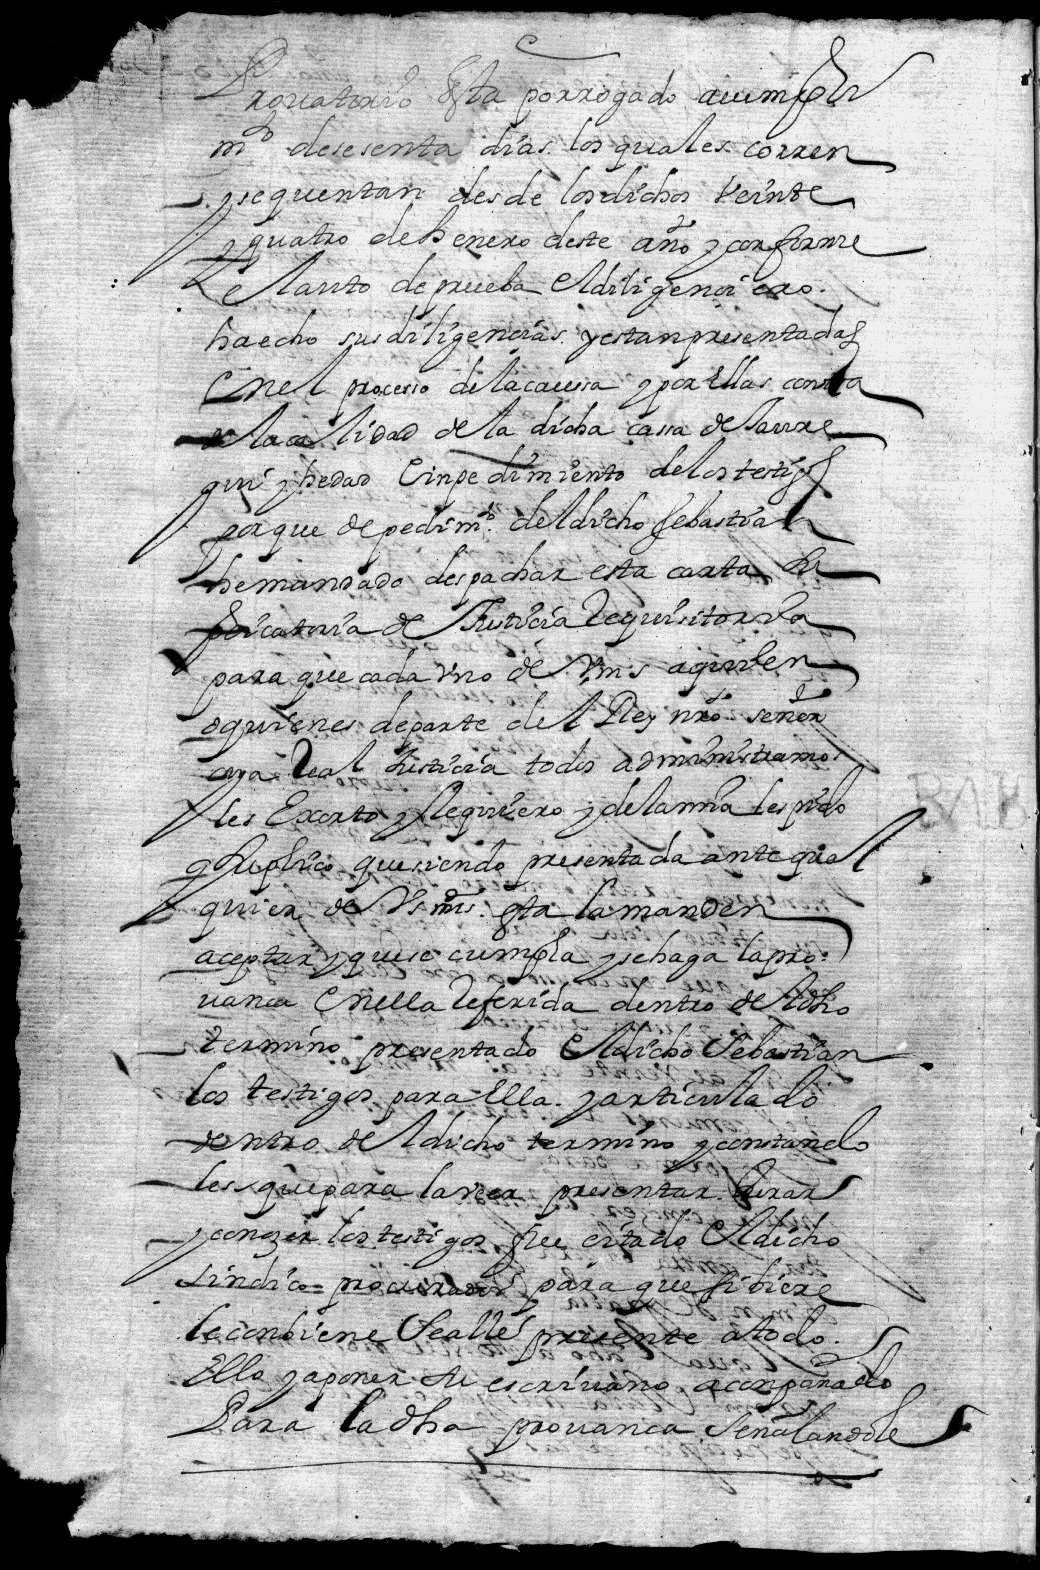 Provatorio Esta porrogado acumpli
mto desesenta dias los quales corren
ysequentan desde losdichos Veinte
y quatro dehenero deste año y conforme
El auto deprueba Eldiligenciero
haecho susdiligencias yestanpresentadas
Enel processo delacaussa y porEllas consta
la calidad de la dicha cassa de Jaure
gui y hedad Einpedimiento delostestigos
porque de pedimto deldicho Sebastian
hemandado despachar esta carta su
plicatoria de Justicia Requisitoria
para que cada Uno de Vms aquien
oquienes departe del Rey nro señor
cuya Real Justicia todos administramos
les Exorto y Requiero y delamia lespido
ysuplico quesiendo presentada antequal
quier de Vs mds. Esta la manden
aceptar yquese cumpla ysehaga lapro
uanca Enella Referida dentro deldho
termino presentado Eldicho Sebastian
los testigos paraElla yarticulado
dentro deldicho termino yconstando
les quepara laver presentar Jurar
yconozer lostestigos fue citado Eldicho
sindico procurador para que sibiere
leconbiene Sealle presente atodo
Ello yaponer su escriuano aconpañado
Para la dha prouanca Señalandole